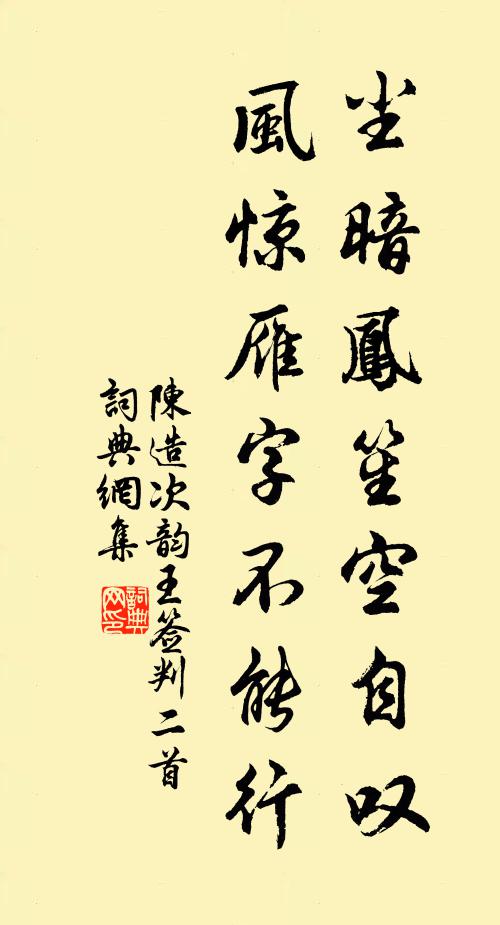 尘暗鳳笙空自叹
風惊雁字不能行
陳造次韵王签判二首
詞典網集
詞典网印